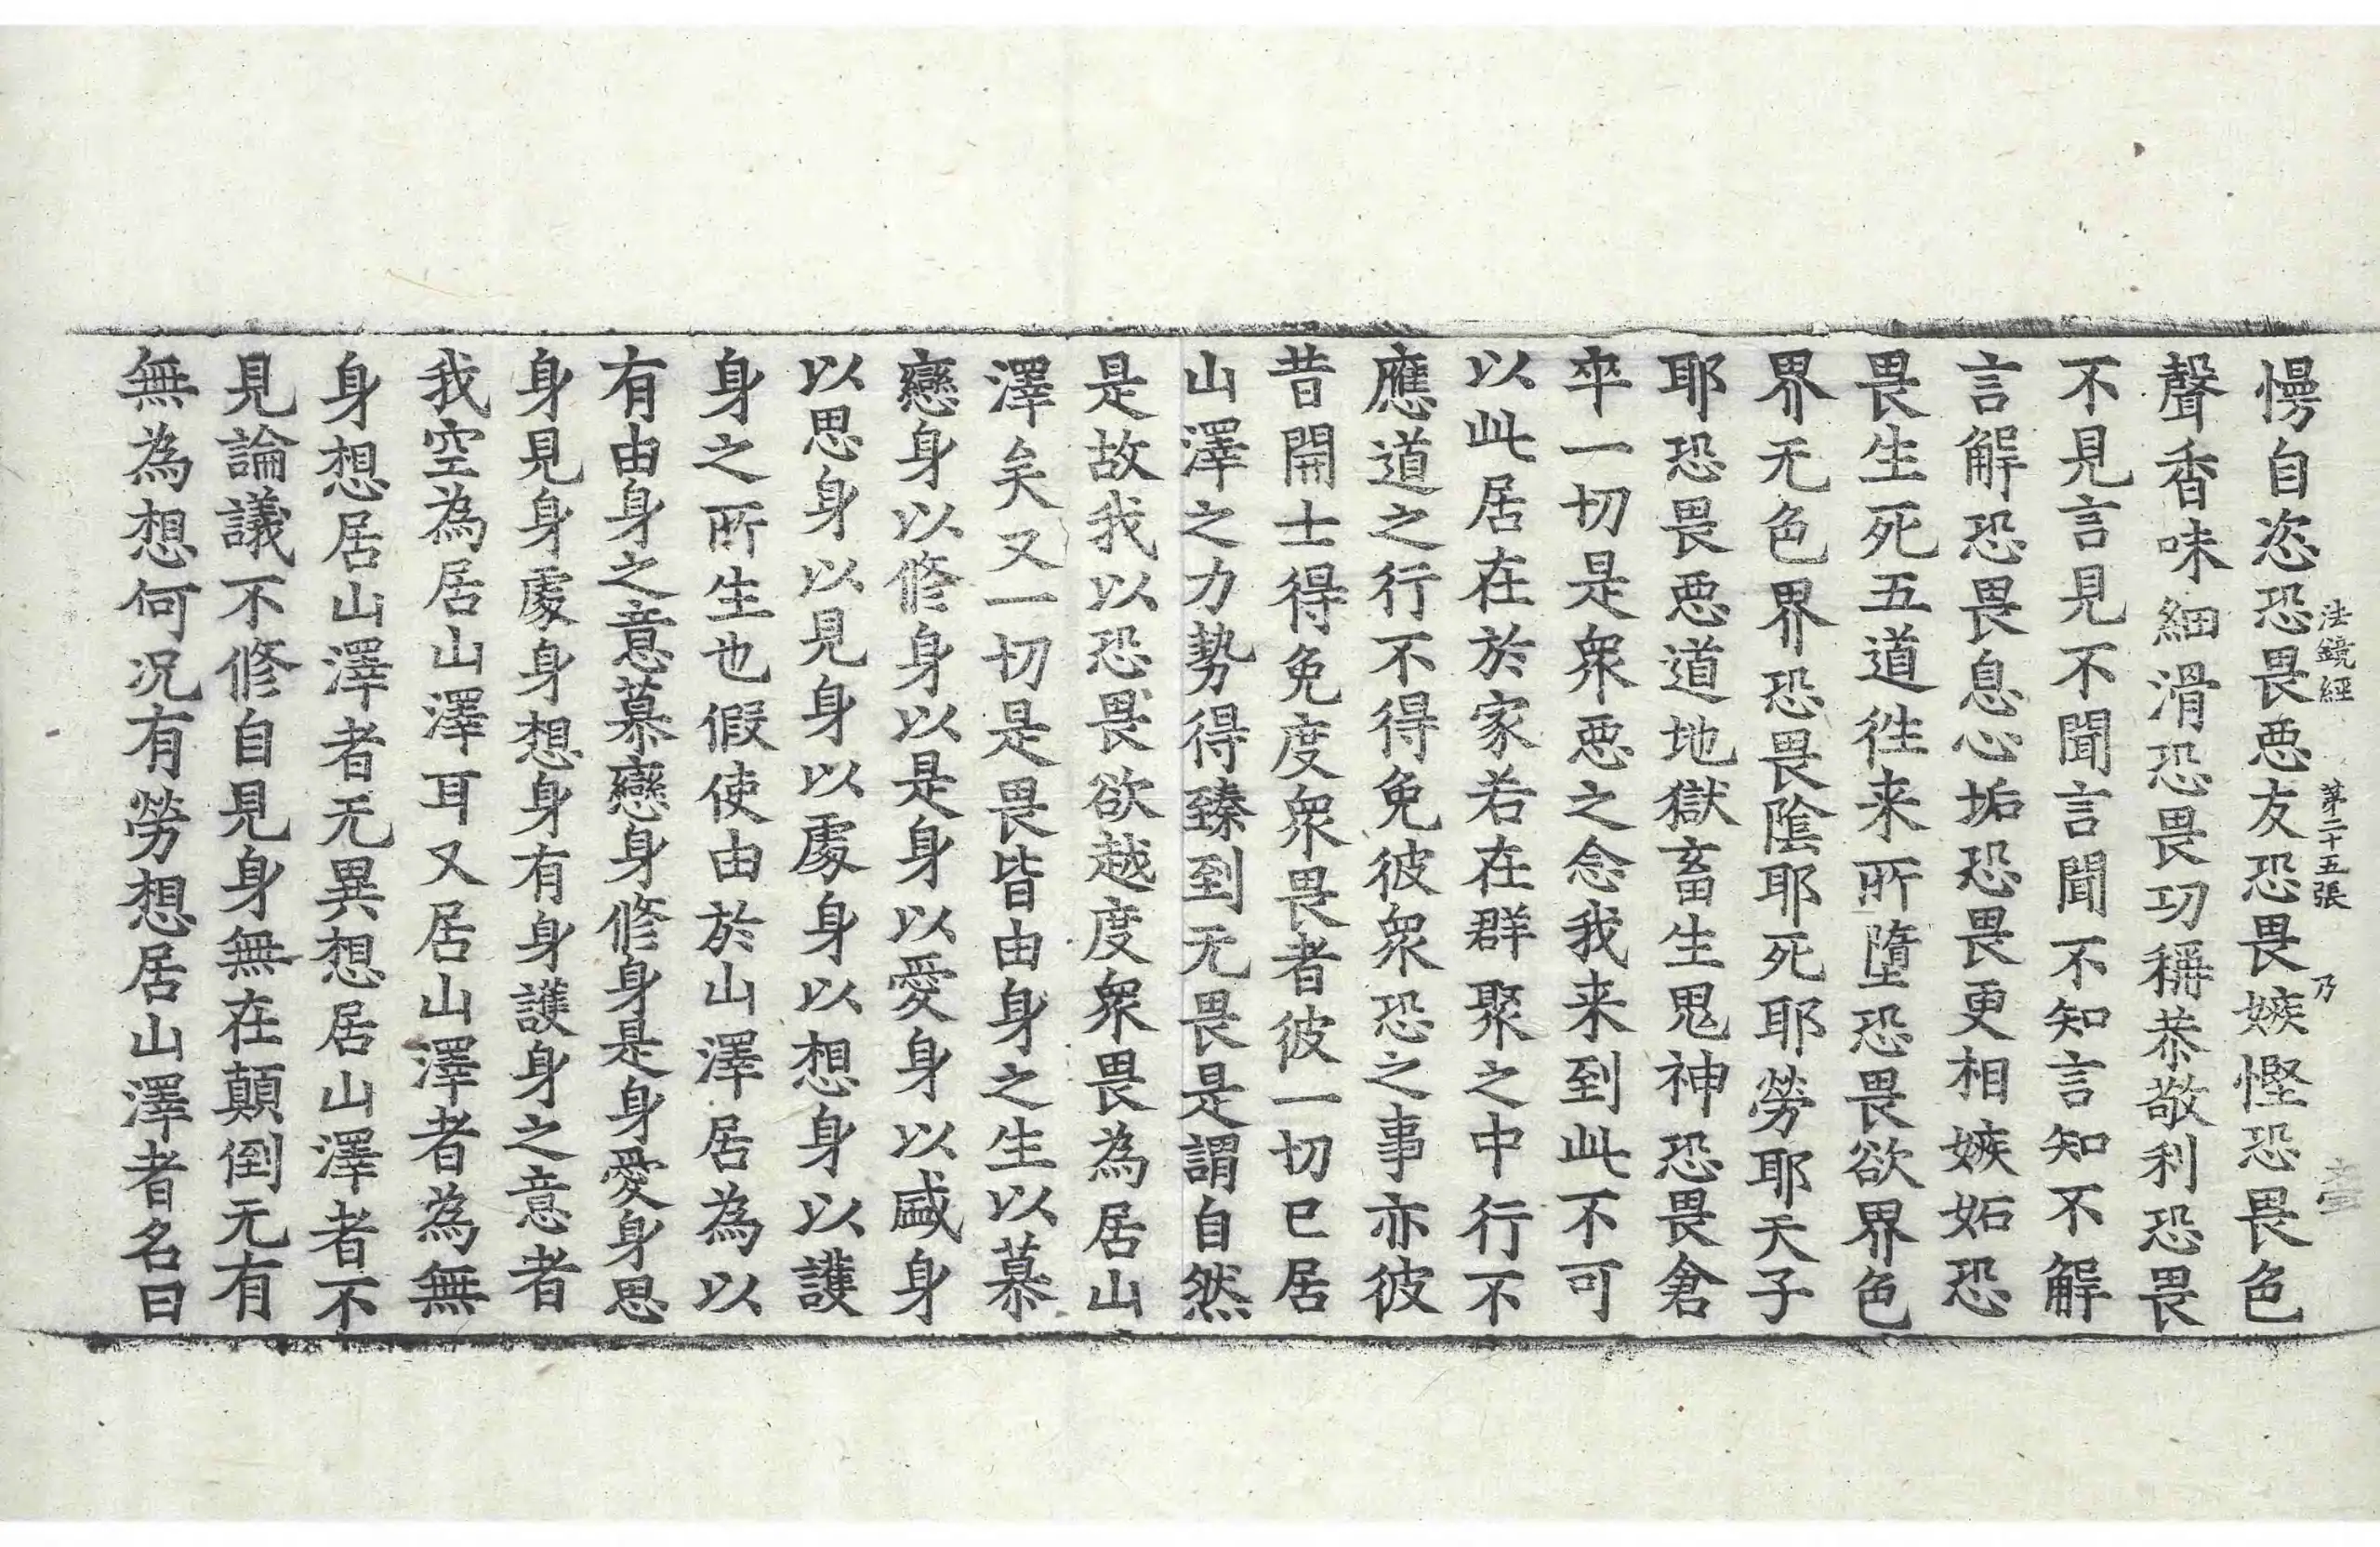 法鏡經 第二十五張 乃
慢自恣恐畏惡友恐畏嫉慳恐畏色
聲香味細滑恐畏功稱恭敬利恐畏
不見言見不聞言聞不知言知不解
言解恐畏息心垢恐畏更相嫉妬恐
畏生死五道徃来所墮恐畏欲界色
界无色界恐畏陰耶死耶勞耶天子
耶恐畏惡道地獄畜生鬼神恐畏倉
卒一切是衆惡之念我来到此不可
以此居在於家若在群聚之中行不
應道之行不得免彼衆恐之事亦彼
昔開士得免度衆畏者彼一切已居
山澤之力勢得臻到无畏是謂自然
是故我以恐畏欲越度衆畏為居山
澤矣又一切是畏皆由身之生以慕
戀身以修身以是身以愛身以盛身
以思身以見身以處身以想身以護
身之所生也假使由於山澤居為以
有由身之意慕戀身修身是身愛身思
身見身處身想身有身護身之意者
我空為居山澤耳又居山澤者為無
身想居山澤者无異想居山澤者不
見論議不修自見身無在顛倒无有
無為想何况有勞想居山澤者名曰